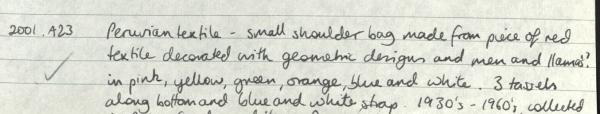 2001.A23 Peruvian textile - small shoulder bag made from piece of red
textile decorated with geometric designs and men and llamas?
in pink, yellow, green, orange, blue and white. 3 tassels
along bottom and blue and white strap. 1930's - 1960's, collected